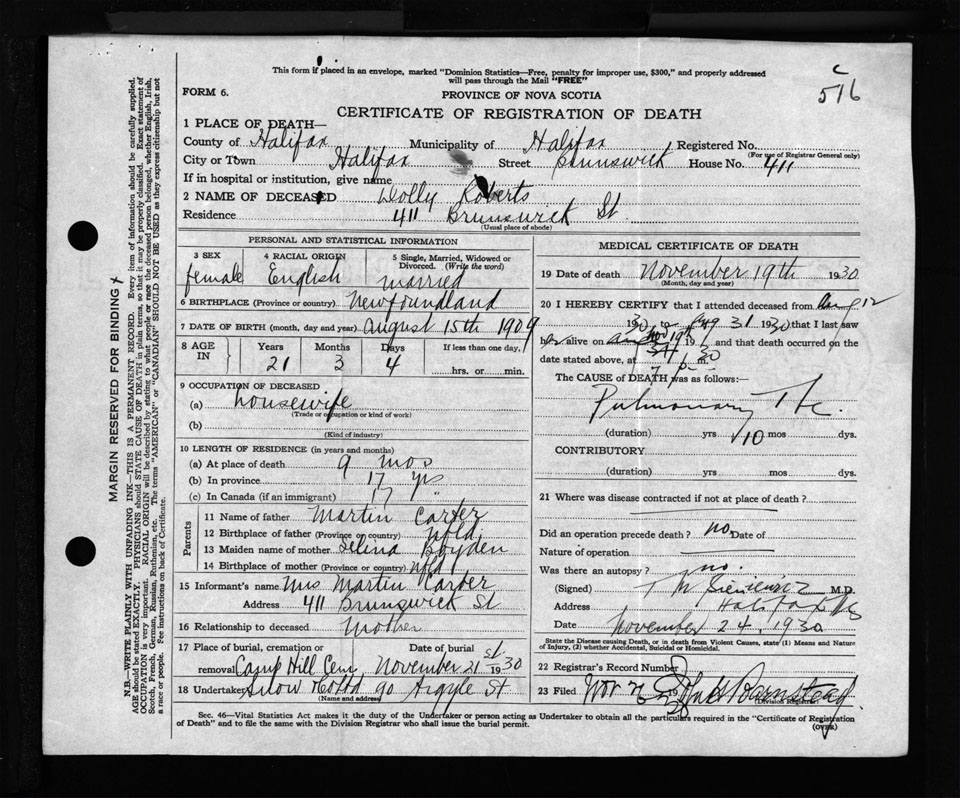 This form if placed in an envelope, marked "Dominion Statistics—Free, penalty for improper use, $300," and properly addressed
will pass through the Mail "FREE"
c
516
FORM 6.
PROVINCE OF NOVA SCOTIA
CERTIFICATE OF REGISTRATION OF DEATH
1 PLACE OF DEATH—
County of Halifax Municipality of Halifax Registered No.
(For use of Registrar General only)
City or Town Halifax Street Brunswick House No. 411
If in hospital or institution, give name
2 NAME OF DECEASED Dolly Roberts
Residence 411 Brunswick St
(Usual place of abode)
PERSONAL AND STATISTICAL INFORMATION
3 SEX 4 RACIAL ORIGIN 5 Single, Married, Widowed or
Divorced. (Write the word)
female English married
6 BIRTHPLACE (Province or country) Newfoundland
7 DATE OF BIRTH (month, day and year) August 15th 1909
8 AGE IN Years Months Days If less than one day,
21 3 4 hrs. or min.
9 OCCUPATION OF DECEASED
(a) housewife
(Trade or occupation or kind of work)
(b)
(Kind of industry)
10 LENGTH OF RESIDENCE (in years and months)
(a) At place of death 9 mos
(b) In province 17 yrs
(c) In Canada (if an immigrant) 17 "
Parents
11 Name of father Martin Carter
12 Birthplace of father (Province or country) Nfld
13 Maiden name of mother Selina Boyden
14 Birthplace of mother (Province or country) Nfld
15 Informant's name Mrs Martin Carter
Address 411 Brunswick St
16 Relationship to deceased Mother
17 Place of burial, cremation or Date of burial
removal Camp Hill Cem November 21 st 1930
18 Undertaker Snow & Co Ltd 90 Argyle St
(Name and address)
MEDICAL CERTIFICATE OF DEATH
19 Date of death November 19th 1930
(Month, day and year)
20 I HEREBY CERTIFY that I attended deceased from Aug 12
1930 to Aug 31 1930 that I last saw
her alive on and that death occurred on the
date stated above, at m.
The CAUSE of DEATH was as follows:—
Pulmonary Tbc.
(duration) yrs 10 mos dys.
CONTRIBUTORY
(duration) yrs mos dys.
21 Where was disease contracted if not at place of death?
Did an operation precede death? no Date of
Nature of operation
Was there an autopsy? no.
(Signed) T M Sieniewicz M.D.
Address Halifax NS
Date November 24, 1930
State the Disease causing Death, or in death from Violent Causes, state (1) Means and Nature
of Injury, (2) whether Accidental, Suicidal or Homicidal.
22 Registrar's Record Number
23 Filed Nov 19 Barnstead
(Division Registrar)
Sec. 46—Vital Statistics Act makes it the duty of the Undertaker or person acting as Undertaker to obtain all the particulars required in the "Certificate of Registration
of Death" and to file the same with the Division Registrar who shall issue the burial permit.
(OVER)
MARGIN RESERVED FOR BINDING
N.B.—WRITE PLAINLY WITH UNFADING INK—THIS IS A PERMANENT RECORD. Every item of information should be carefully supplied.
AGE should be stated EXACTLY. PHYSICIANS should STATE CAUSE OF DEATH in plain terms, so that it may be properly classified. Exact statement of
OCCUPATION is very important. RACIAL ORIGIN will be described by stating to what people or race the deceased person belonged, whether English, Irish,
Scotch, French, German, Russian, Ruthenian, etc. The terms "AMERICAN" or "CANADIAN" SHOULD NOT BE USED as they express citizenship but not
a race or people. Fee instructions on back of Certificate.